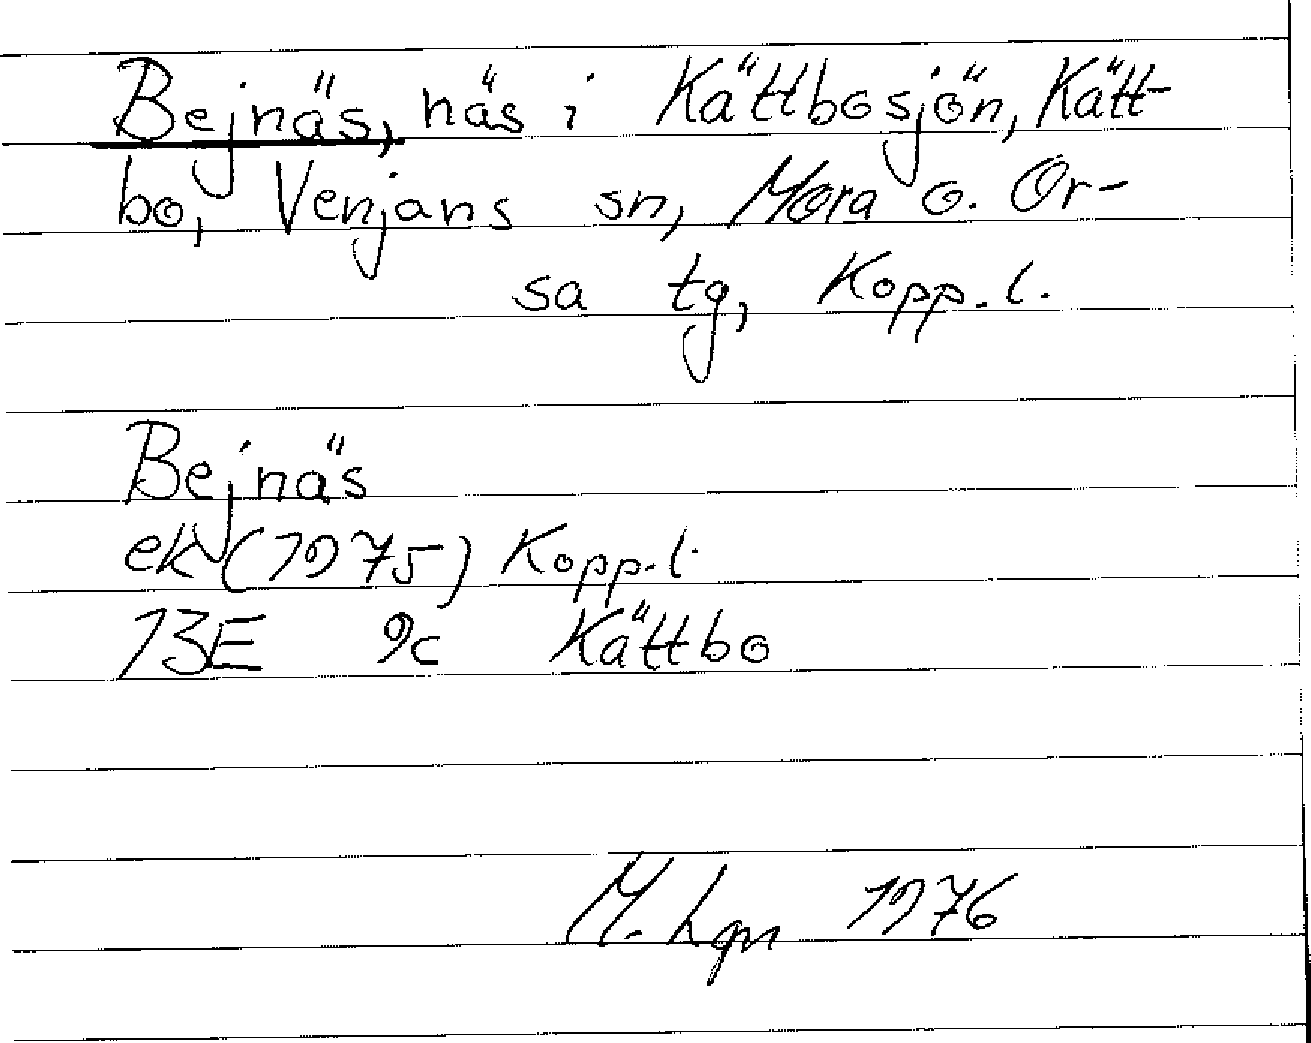 Bejnäs, näs i Kättbosjön, Kätt-
bo, Venjans sn, Mora o. Or-
sa tg, Kopp. l.
Bejnäs
ek (1975) Kopp. l.
13E 9c Kättbo
M. Lgn 1976